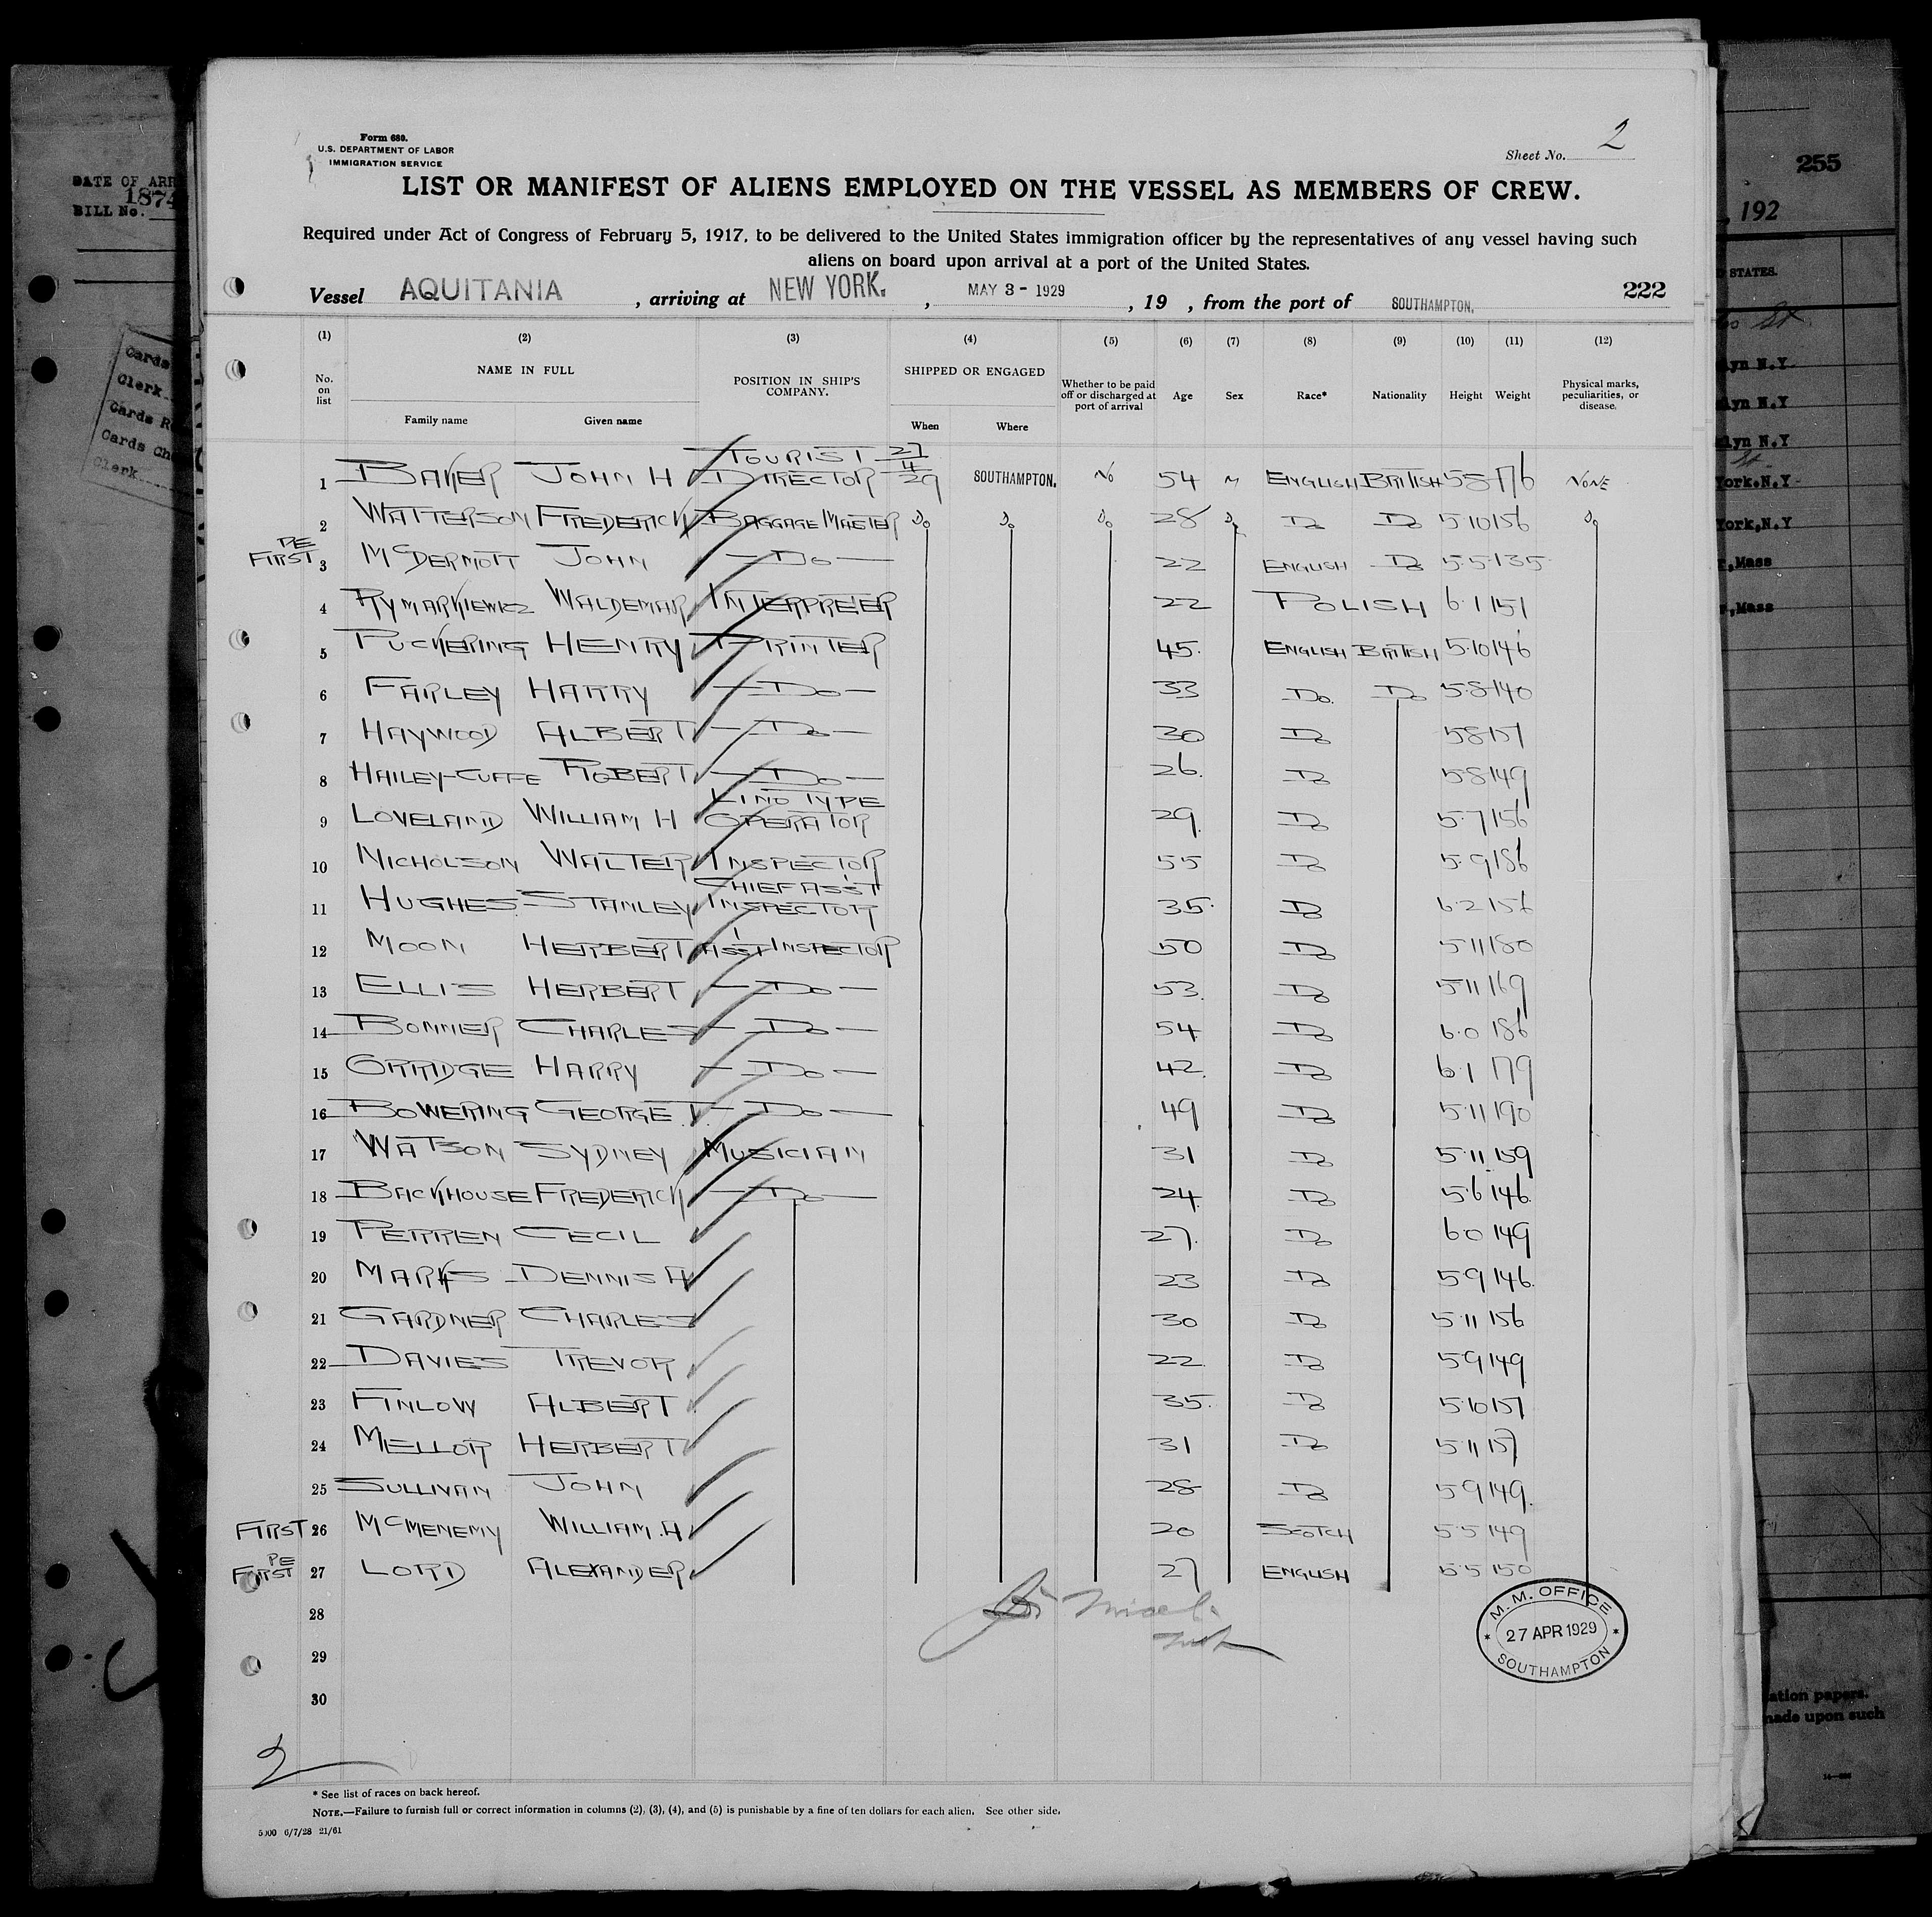 Form 680.
U.S. DEPARTMENT OF LABOR
IMMIGRATION SERVICE
Sheet No. 2
LIST OR MANIFEST OF ALIENS EMPLOYED ON THE VESSEL AS MEMBERS OF CREW.
Required under Act of Congress of February 5, 1917, to be delivered to the United States immigration officer by the representatives of any vessel having such
aliens on board upon arrival at a port of the United States.
Vessel AQUITANIA, arriving at NEW YORK., MAY 3 - 1929, 19 , from the port of SOUTHAMPTON. 222
(1) (2) (3) (4) (5) (6) (7) (8) (9) (10) (11) (12)
No. on list NAME IN FULL POSITION IN SHIP'S COMPANY. SHIPPED OR ENGAGED Whether to be paid off or discharged at port of arrival Age Sex Race* Nationality Height Weight Physical marks, peculiarities, or disease.
Family name Given name When Where
1 BAKER JOHN H TOURIST DIRECTOR 27/4/29 SOUTHAMPTON. NO 54 M ENGLISH BRITISH 5 8 176 NONE
2 WATTERSON FREDERICK BAGGAGE MASTER Do Do Do 28 Do Do Do 5 10 156 Do
PE FIRST 3 McDERMOTT JOHN — Do — 22 ENGLISH Do 5.5 135
4 RYMARKIEWICZ WALDEMAR INTERPRETER 22 POLISH 6.1 151
5 PUCKERING HENRY PRINTER 45. ENGLISH BRITISH 5.10 146
6 FARLEY HARRY — Do — 33 Do. Do 5.8 140
7 HAYWOOD ALBERT — Do — 30 Do 5 8 151
8 HAILEY-CUFFE ROBERT — Do — 26. Do 5 8 149
9 LOVELAND WILLIAM H LINO TYPE OPERATOR 29. Do 5.7 156
10 NICHOLSON WALTER INSPECTOR 55 Do 5.9 186
11 HUGHES STANLEY CHIEF ASS'T INSPECTOR 35. Do 6.2 156
12 MOON HERBERT ASS'T INSPECTOR 50 Do 5 11 180
13 ELLIS HERBERT — Do — 53. Do 5 11 169
14 BONNER CHARLES — Do — 54 Do 6.0 186
15 ORRIDGE HARRY — Do — 42. Do 6.1 179
16 BOWERING GEORGE T — Do — 49 Do 5.11 190
17 WATSON SYDNEY MUSICIAN 31 Do 5.11 159
18 BACKHOUSE FREDERICK — Do — 24 Do 5.6 146
19 PERREN CECIL 27. Do 6 0 149
20 MARKS DENNIS A 23 Do 5 9 146.
21 GARDNER CHARLES 30 Do 5.11 156
22 DAVIES TREVOR 22 Do 5 9 149
23 FINLOW ALBERT 35. Do 5.10 151
24 MELLOR HERBERT 31 Do 5.11 157
25 SULLIVAN JOHN 28 Do 5 9 149.
FIRST 26 McMENEMY WILLIAM.A 20 SCOTCH 5 5 149
PE FIRST 27 LORD ALEXANDER 27 ENGLISH 5.5 150
28
29
30
M. M. OFFICE
27 APR 1929
SOUTHAMPTON
2
* See list of races on back hereof.
NOTE.—Failure to furnish full or correct information in columns (2), (3), (4), and (5) is punishable by a fine of ten dollars for each alien. See other side.
5000 6/7/28 21/61
DATE OF ARR
1874
BILL No.
Cards
Clerk
Cards R
Cards Ch
Clerk
255
192
STATES.
lyn N.Y.
lyn N.Y
lyn N.Y
York.N.Y.
York,N.Y
,Mass
,Mass
ation papers.
made upon such